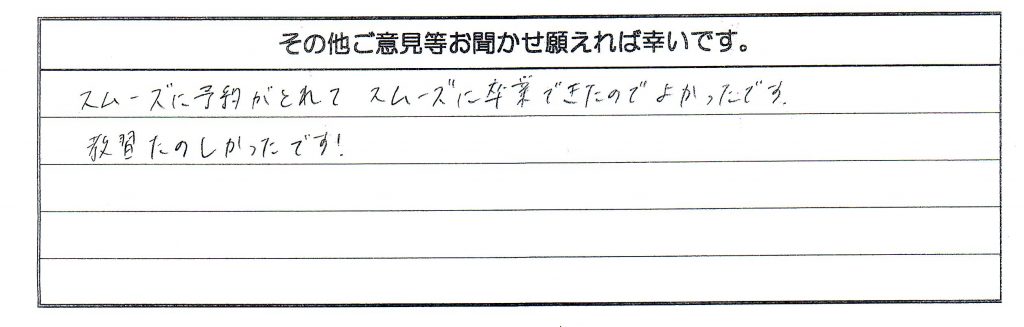 その他ご意見等お聞かせ願えれば幸いです。
スムーズに予約がとれて スムーズに卒業できたのでよかったです.
教習たのしかったです!